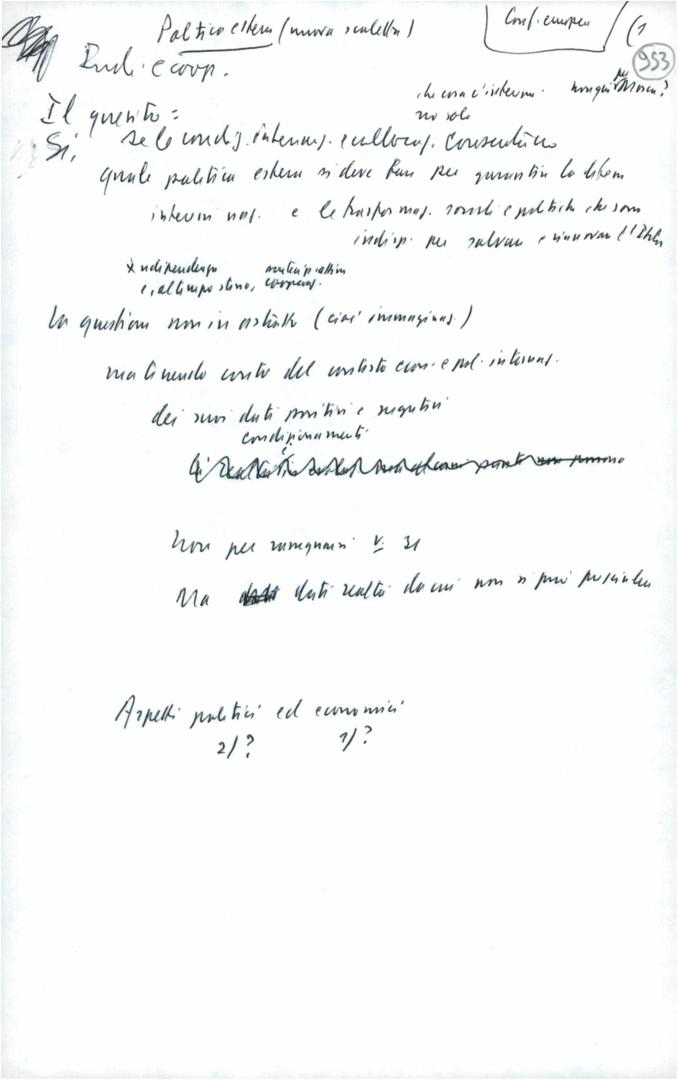 Politica estera (nuova scaletta)
Conf. europea
(1
953
Ind. e coop.
che cosa c'interessa
non qui per Mosca?
no solo
Il quesito =
Sì, se le condiz. internaz. e collocaz. consentono
quale politica estera si deve fare per garantire la libera
internaz. e le trasformaz. sociali e politiche che sono
indisp. per salvare e rinnovare l'Italia
x indipendenza
e, al tempo stesso, cooperaz.
La questione non in astratto (cioè immaginaz.)
ma tenendo conto del contesto econ. e pol. internaz.
dei suoi dati positivi e negativi
condizionamenti
Non per rassegnarsi v. 31
Ma dati realtà da cui non si può prescindere
Aspetti politici ed economici
2/? 1/?